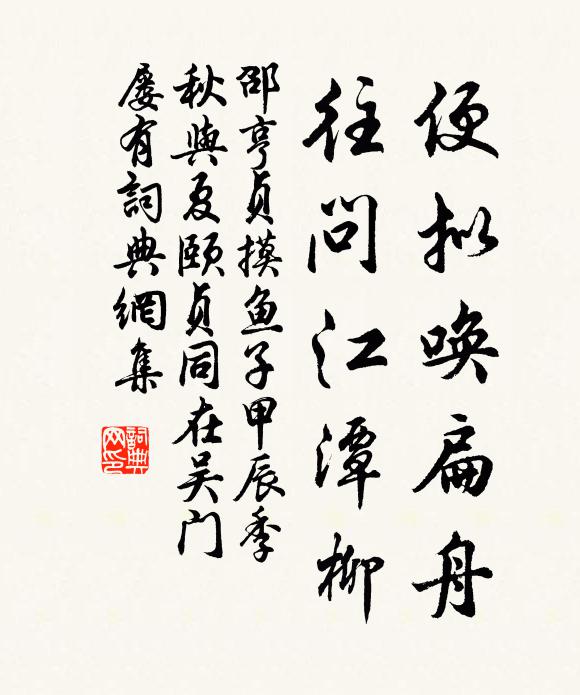 便拟唤扁舟
往问江潭柳
邵亨贞摸鱼子甲辰季
秋與夏颐贞同在吴门
屡有詞典網集
詞典
网印